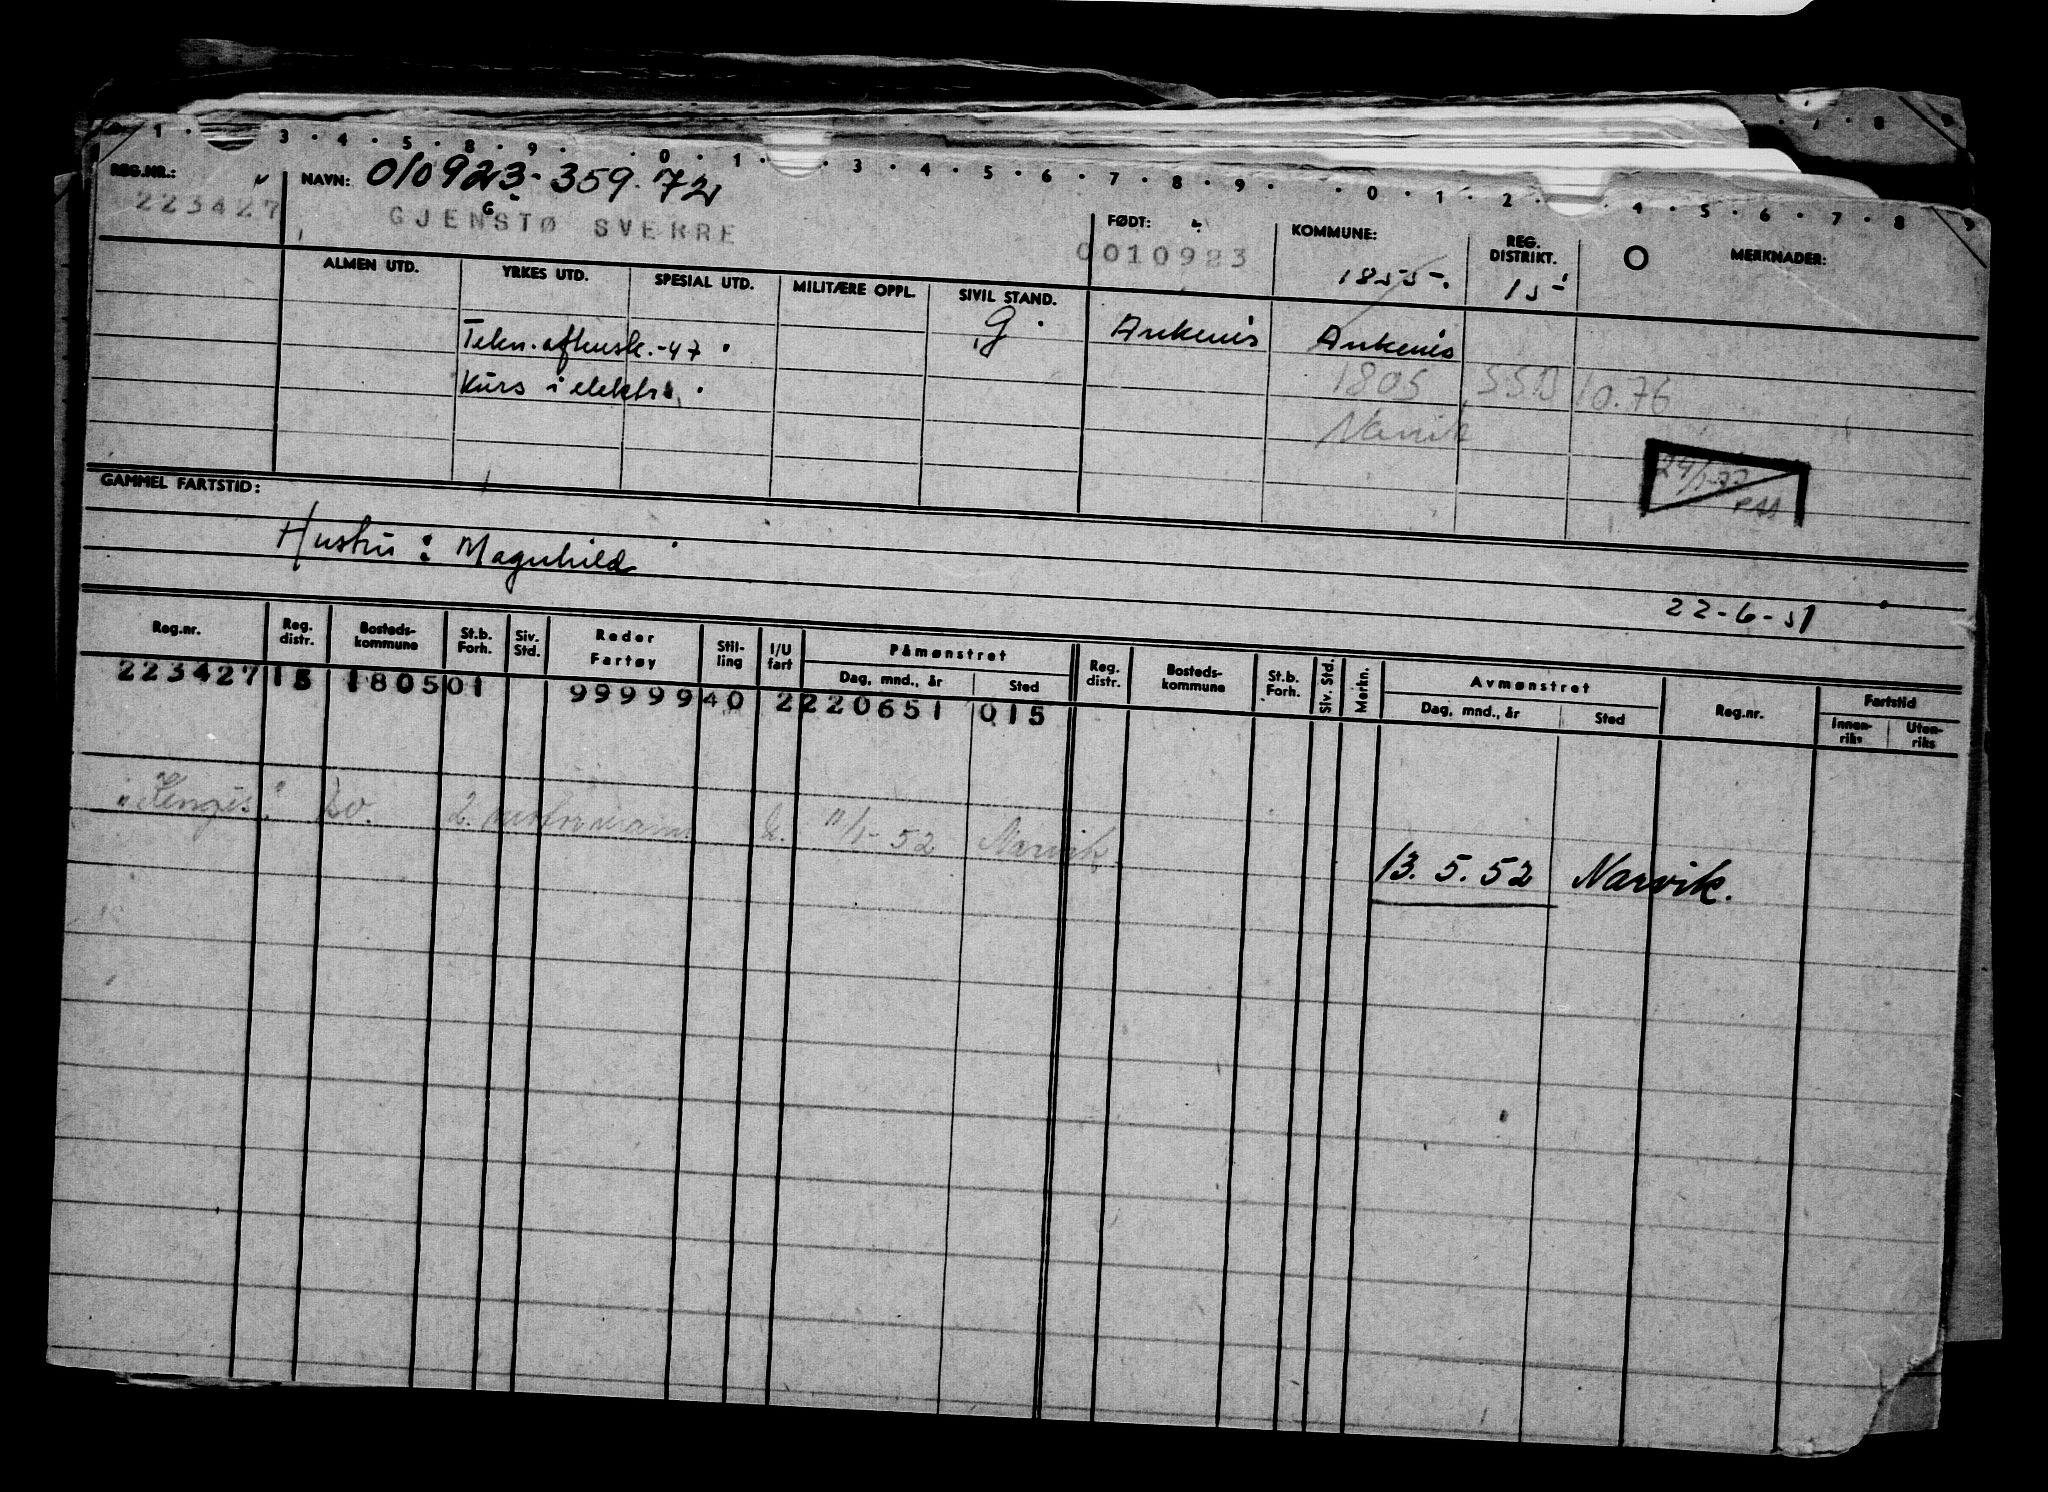 1 · 3 · 4 · 5 · 8 · 9 · 0 · 1 · 3 · 4 · 5 · 6 · 7 · 8 · 9 · 0 · 1 · 2 · 4 · 5 · 6 · 7 · 8 · 9
REG.NR.: NAVN: 010923-359.72
223427 G GJENSTØ SVERRE FØDT: 0010923 KOMMUNE: 1855-. REG. DISTRIKT. 15 O MERKNADER:
ALMEN UTD. YRKES UTD. SPESIAL UTD. MILITÆRE OPPL. SIVIL STAND.
Tekn. aftensk. -47 G. Ankenis Ankenis
Kurs i elektr. 1805 SSB 10.76
Narvik
24/1-77
GAMMEL FARTSTID:
Hustru: Magnhild
22-6-51
Reg.nr. Reg. distr. Bosteds-kommune St.b. Forh. Siv. Std. Reder Fartøy Stil-ling I/U fart Påmønstret Dag, mnd., år Sted Reg. distr. Bosteds-kommune St.b. Forh. Siv. Std. Merkn. Avmønstret Dag, mnd., år Sted Reg.nr. Fartstid Innen-riks Uten-riks
223427 15 1805 01 99999 40 2 220651 015
"Kengis". 20. 2. motormann u. 11/1-52 Narvik
13.5.52 Narvik.